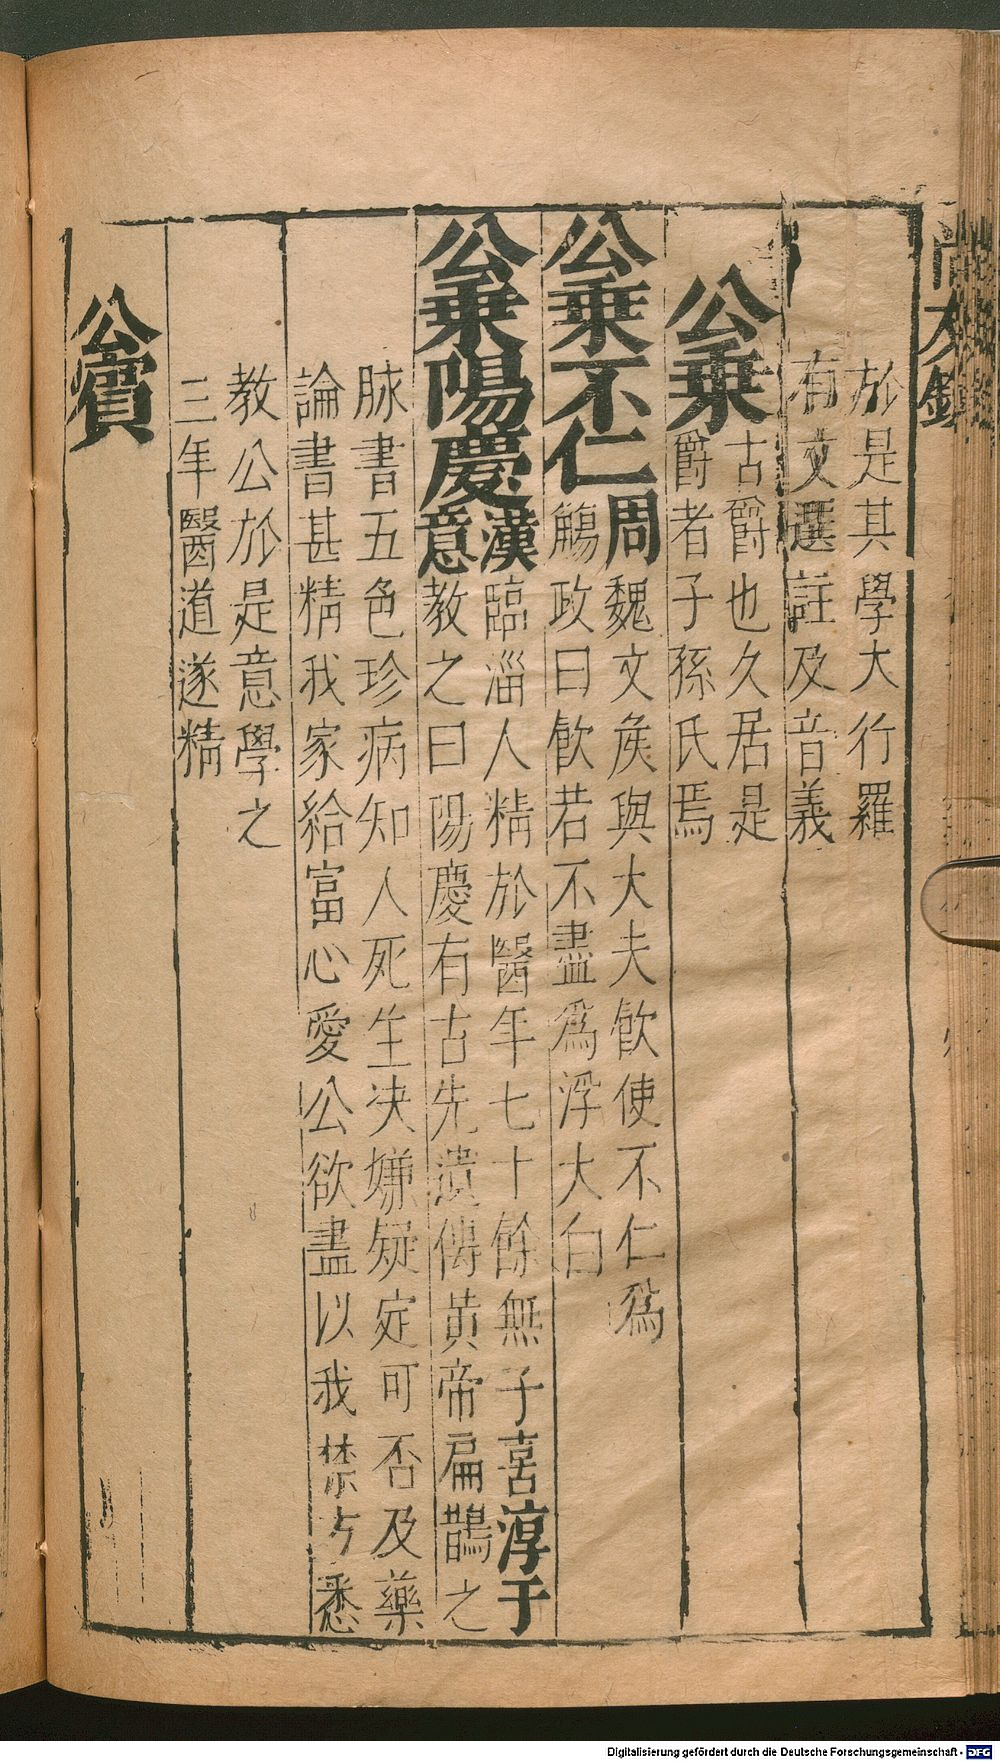 於是其學大行羅
有文選註及音義
公乗
古爵也久居是
爵者子孫氏焉
公乗不仁
周魏文矦與大夫飮使不仁爲
觴政曰飮若不盡爲浮大白
公乗陽慶
漢臨淄人精於醫年七十餘無子喜淳于
意教之曰陽慶有古先遺傳黄帝扁鵲之
脉書五色珍病知人死生决嫌疑定可否及藥
論書甚精我家給富心愛公欲盡以我禁方悉
教公於是意學之
三年醫道遂精
公賓
Digitalisierung gefördert durch die Deutsche Forschungsgemeinschaft - DFG